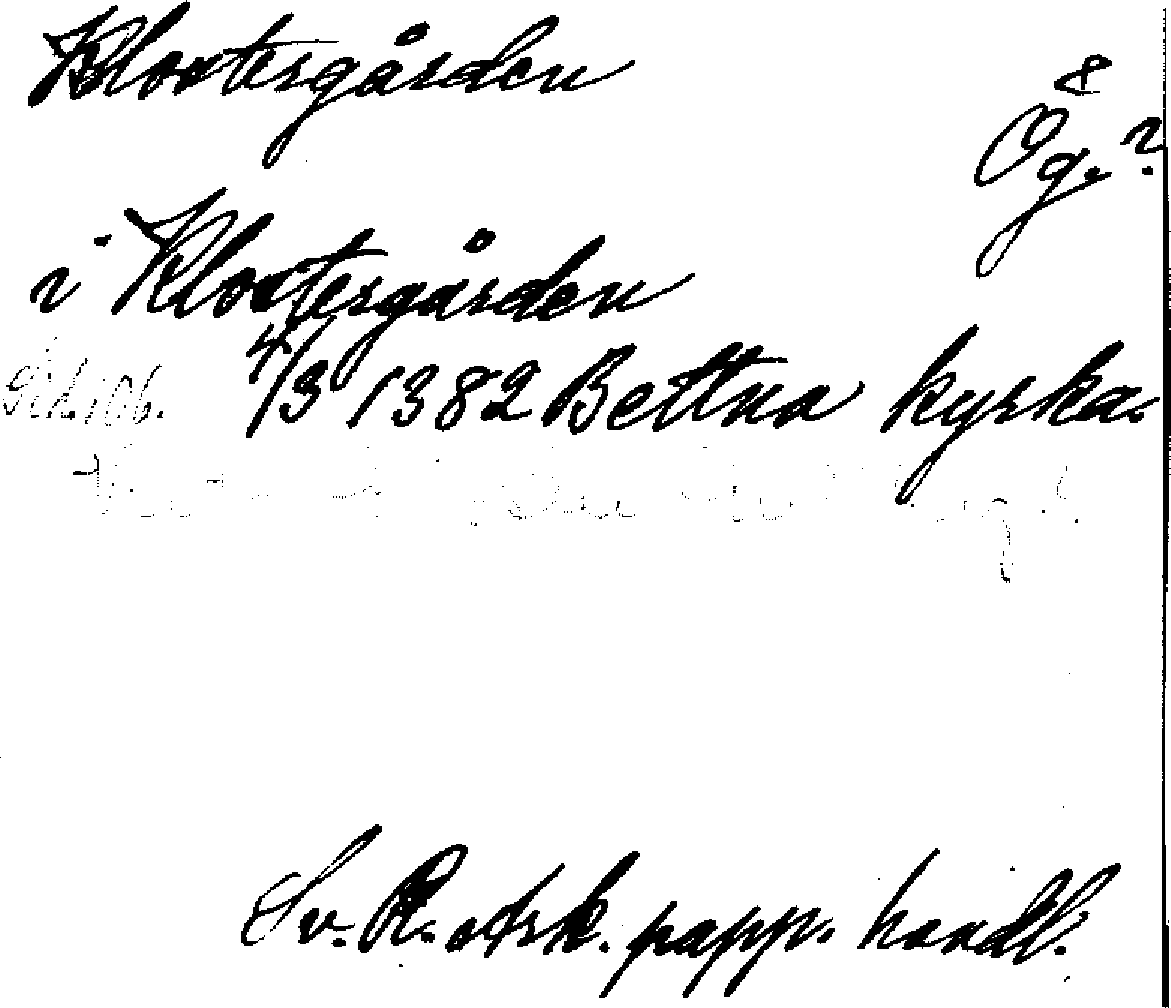 Klostergården
Ög.?
i Klostergården
4/3 1382 Bettna kyrka.
Sv. R. ark. papp. handl.